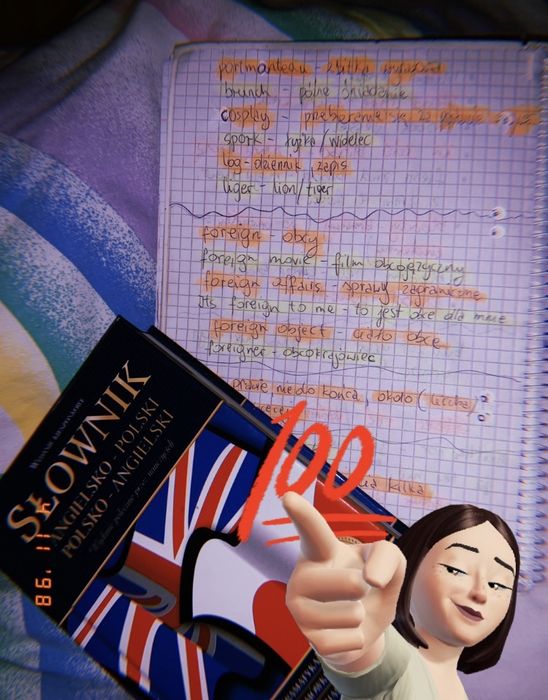 portmanteau - zbitka wyrazowa
brunch - późne śniadanie
cosplay - przebieranie się za
spork - łyżka/widelec
log - dziennik, zapis
liger - lion/tiger
foreign - obcy
foreign movie - film obcojęzyczny
foreign affairs - sprawy zagraniczne
It's foreign to me - to jest obce dla mnie
foreign object - ciało obce
foreigner - obcokrajowiec
prawie, nie do końca, około (liczba)
kilka
SŁOWNIK
ANGIELSKO - POLSKI
POLSKO - ANGIELSKI
100